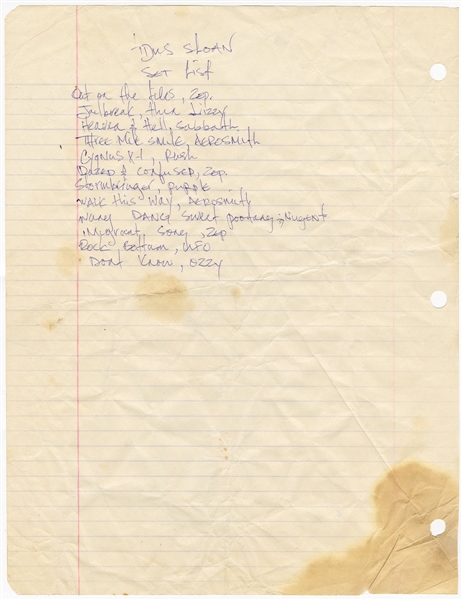 Idus SLOAN
Set List
Out on the tiles, Zep.
Jailbreak, thin Lizzy
Heaven & Hell, Sabbath
Three Mile Smile, AEROSMITH
Cygnus X-1, Rush
Dazed & confused, Zep.
Stormbringer, purple
Walk this Way, AEROSMITH
Wang DANG Sweet poontang, Nugent
Immigrant Song, Zep
Rock Bottom, UFO
Dont Know, Ozzy